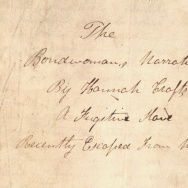 The
Bondwoman's Narrat
By Hannah Crafts
A Fugitive Slave
Recently Escaped From N